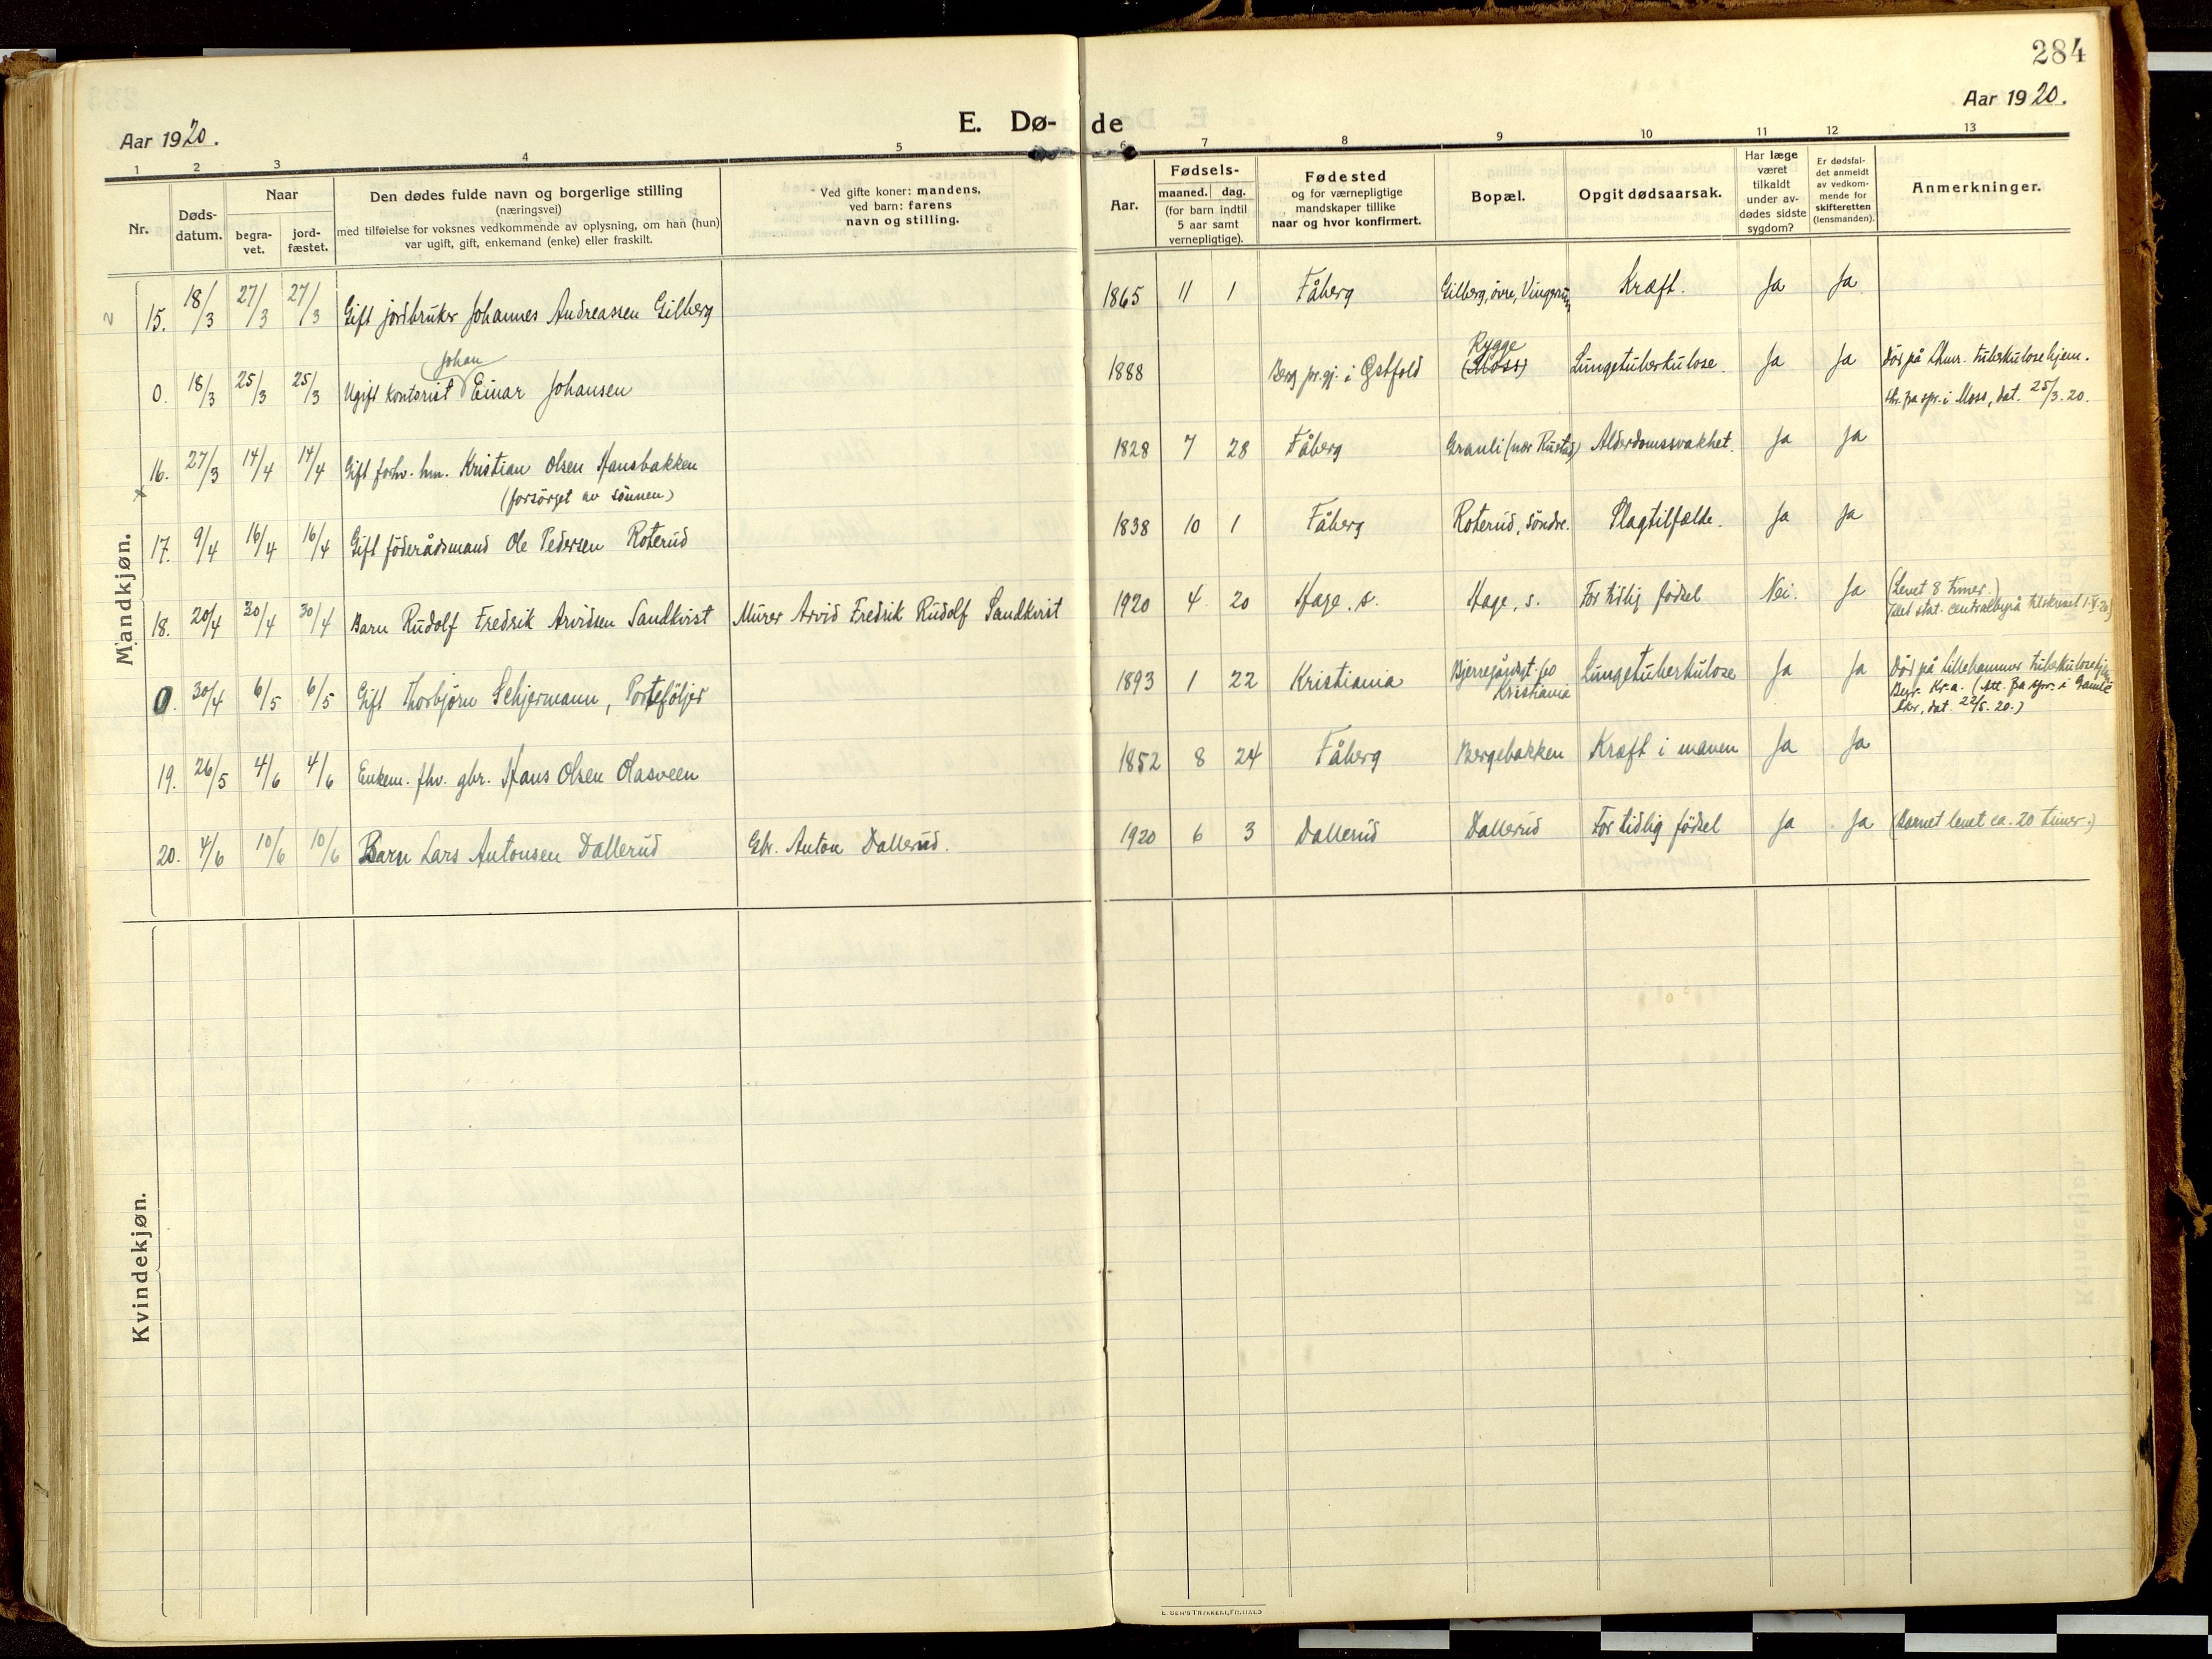 284
Aar 1920.
Aar 1920.
E. Dø- de
1 2 3 4 5 6 7 8 9 10 11 12 13
Nr.
Døds-
datum.
Naar
begra-
vet.
jord-
fæstet.
Den dødes fulde navn og borgerlige stilling
(næringsvei)
med tilføielse for voksnes vedkommende av oplysning, om han (hun)
var ugift, gift, enkemand (enke) eller fraskilt.
Ved gifte koner: mandens,
ved barn: farens
navn og stilling.
Aar.
Fødsels-
maaned. dag.
(for barn indtil
5 aar samt
vernepligtige).
Fødested
og for værnepligtige
mandskaper tillike
naar og hvor konfirmert.
Bopæl.
Opgit dødsaarsak.
Har læge
været
tilkaldt
under av-
dødes sidste
sygdom?
Er dødsfal-
det anmeldt
av vedkom-
mende for
skifteretten
(lensmanden).
Anmerkninger.
Mandkjøn.
2 15. 18/3 27/3 27/3 Gift jordbruker Johannes Andreassen Gilberg 1865 11 1 Fåberg Gilberg, övre, Vingrom Kræft. Ja Ja
Johan
Rygge
0. 18/3 25/3 25/3 Ugift kontorist Einar Johansen 1888 Berg pr.gj. i Östfold (Moss) Lungetuberkulose. Ja Ja Död på Lhmr. tuberkulosehjem.
spr. i Moss, dat. 25/3.20.
x 16. 27/3 14/4 14/4 Gift forhv. hm. Kristian Olsen Hansbakken 1828 7 28 Fåberg Granli (nær Rustad) Alderdomssvakhet. Ja Ja
(forsörget av sönnen)
17. 9/4 16/4 16/4 Gift föderådsmand Ole Pedersen Roterud 1838 10 1 Fåberg Roterud, söndre. Slagtilfælde. Ja Ja
18. 20/4 30/4 30/4 Barn Rudolf Fredrik Arvidsen Sandkvist Murer Arvid Fredrik Rudolf Sandkvist 1920 4 20 Hage, s. Hage, s. For tidlig födsel Nei. Ja (Levet 8 timer.)
(Det stat. centralbyrå tilskrevet 1.V.20)
0. 30/4 6/5 6/5 Gift Thorbjörn Schjermann, Porteföljer 1893 1 22 Kristiania Bjerregårdsgt. 60 Lungetuberkulose Ja Ja Död på Lillehammer tuberkulosehjem
Kristiania
Begr. Kr.a. (Att. fra spr. i Gamle
Aker, dat. 22/5.20.)
19. 26/5 4/6 4/6 Enkem. fhv. gbr. Hans Olsen Olasveen 1852 8 24 Fåberg Bergebakken Kræft i maven Ja Ja
20. 4/6 10/6 10/6 Barn Lars Antonsen Dallerud Gbr. Anton Dallerud. 1920 6 3 Dallerud Dallerud For tidlig födsel Ja Ja (Barnet levet ca. 20 timer.)
Kvindekjøn.